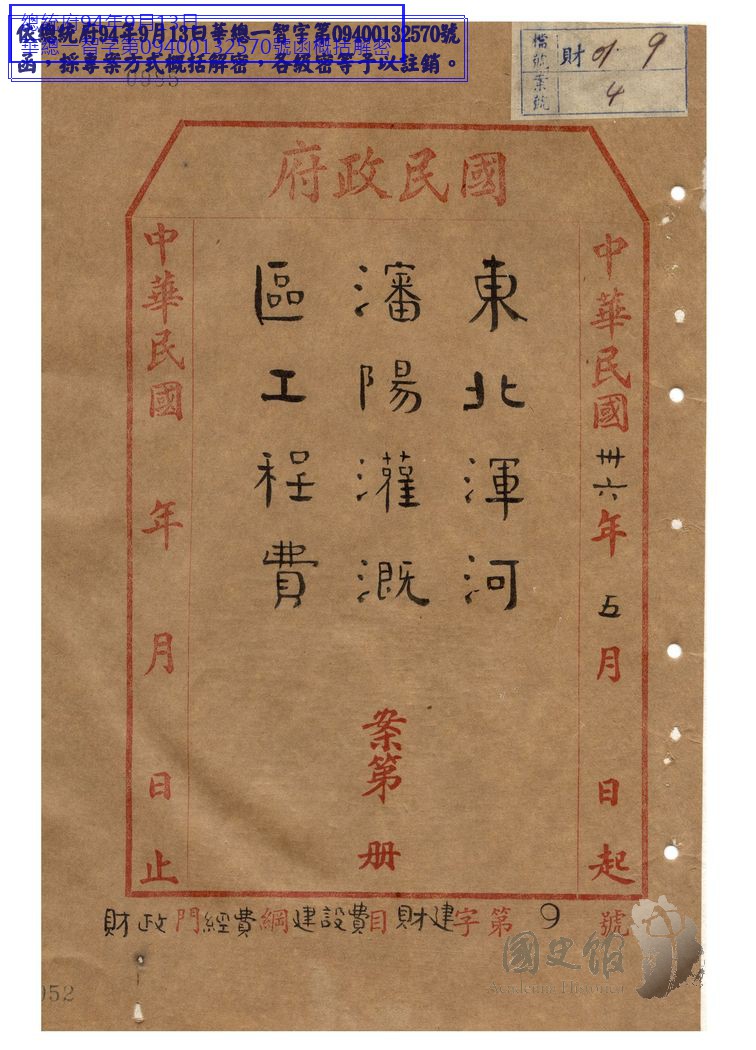 總統府94年9月13日
華總一智字第09400132570號函概括解密
依總統府94年9月13日華總一智字第09400132570號
函，採專案方式概括解密，各級密等予以註銷。
檔號 財 01 9
案號 4
國民政府
中華民國卅六年五月 日起
東北渾河
瀋陽灌溉
區工程費
案第 册
中華民國 年 月 日止
財政門經費綱建設費目財建字第9號
國史館
Academia Historica
952